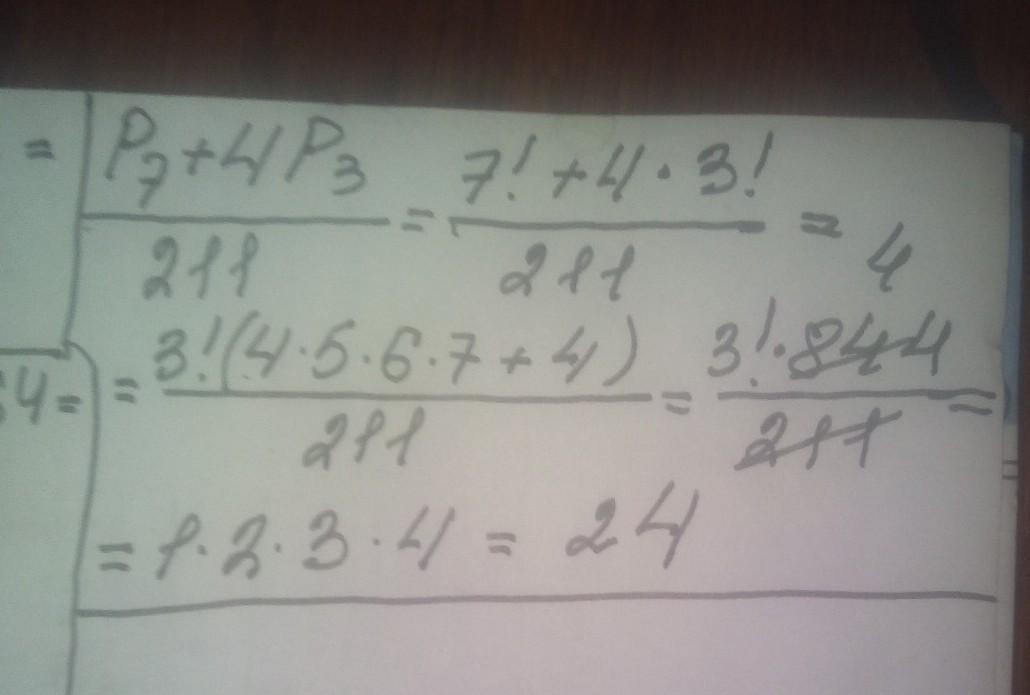 = P₇+4P₃ / 211 = 7!+4·3! / 211 =
:4= = 3!(4·5·6·7+4) / 211 = 3!·844 4 / 211 =
= 1·2·3·4 = 24